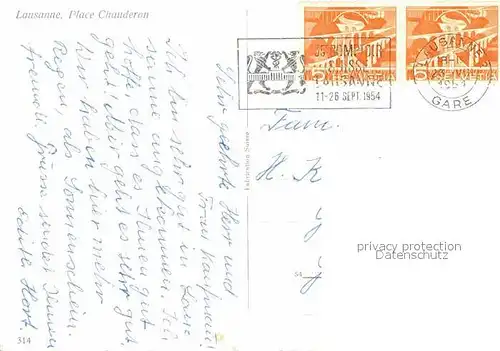 Lausanne, Place Chauderon
35e COMPTOIR
SUISSE
LAUSANNE
11-26 SEPT. 1954
LAUSANNE 1
GARE
Sehr geehrte Herr und
Frau Kaufmann.
Ich bin sehr gut in Lau-
sanne angekommen. Ich
hoffe dass es Ihnen gut
geht. Mir geht es sehr gut.
Wir haben hier mehr
Regen als Sonnenschein.
freundl. Grüsse sendet Ihnen
Edith Hort.
Fam.
H. K
privacy protection
Datenschutz
54
314